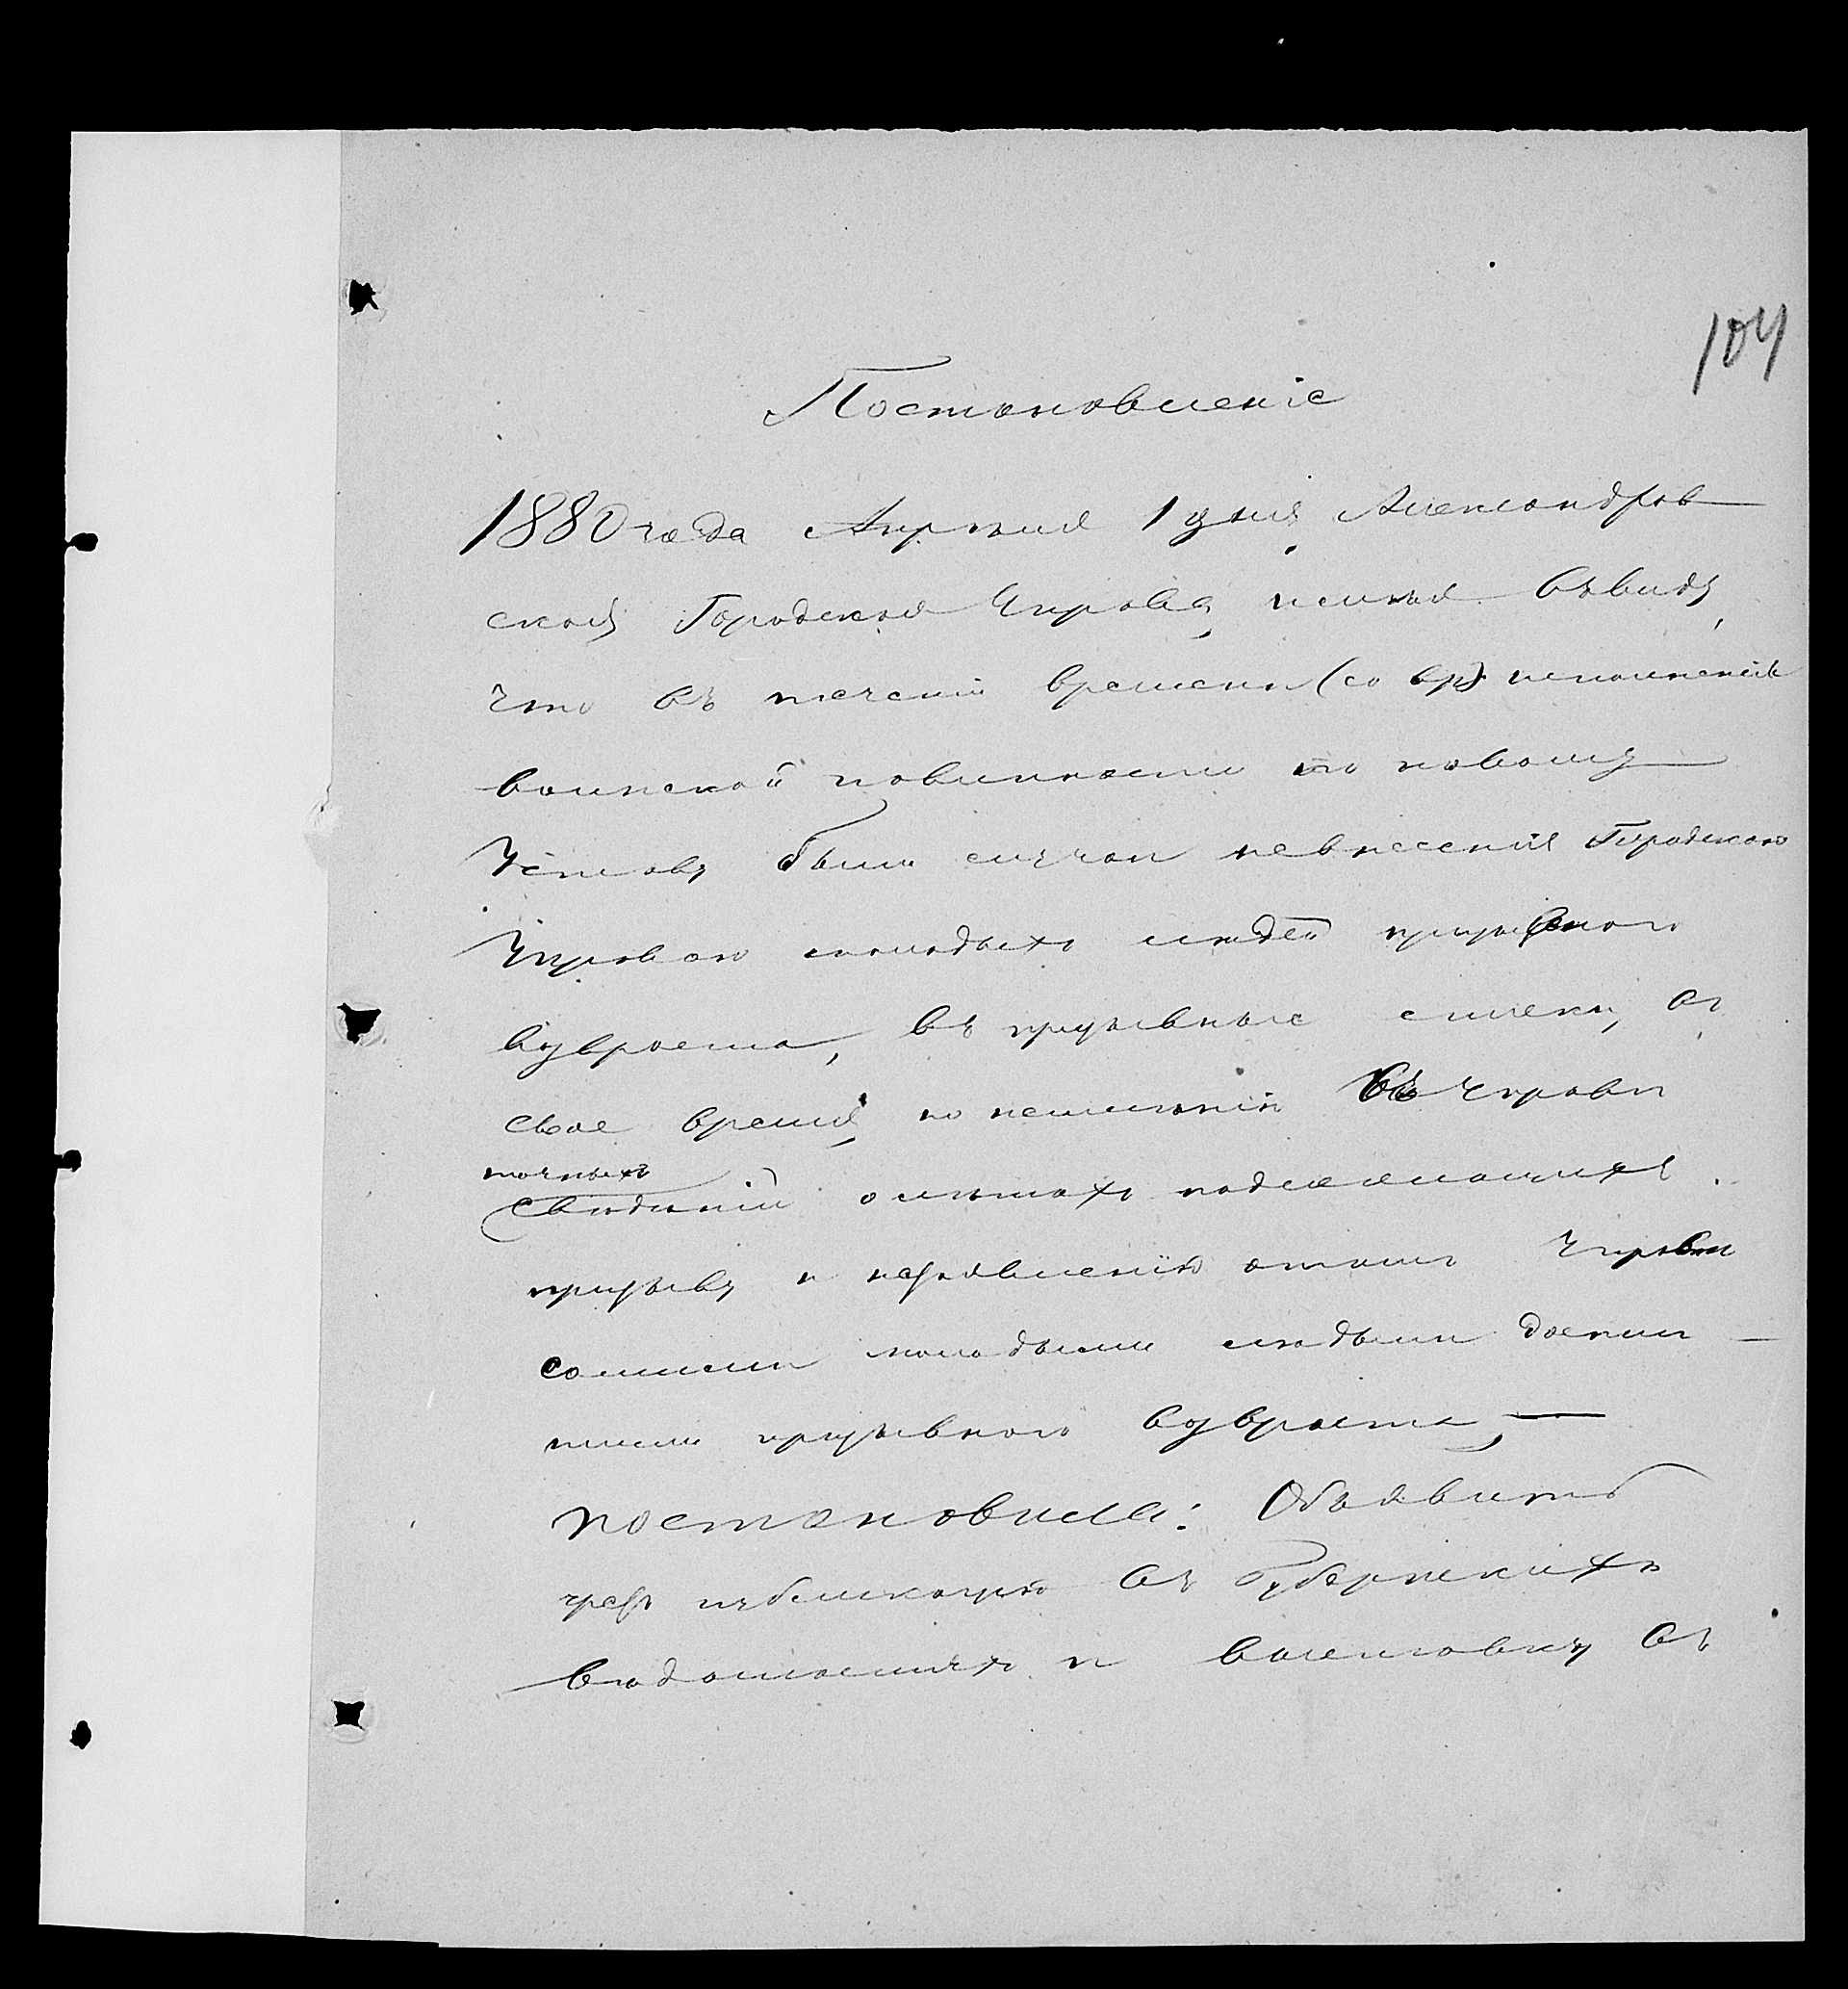 104
Постановленіе
1880 года Апреля 1 дня, Александров-
ская Городская Управа, имея ввиду,
что въ теченіи времени (со вр) исполненія
воинской повинности по новому
Уставу были случаи невнесенія Городскою
Управою молодыхъ людей призывного
возвроста, въ призывные списки, въ
свое время, по неименію въ Управе
точныхъ
сведеній о летахъ подлежащихъ
призыву и незаявленію о томъ Управе
самими молодыми людьми достиг-
шими призывного возвроста, —
постановила: Объявить
чрезъ публикацію въ Губернскихъ
ведомостяхъ и въ